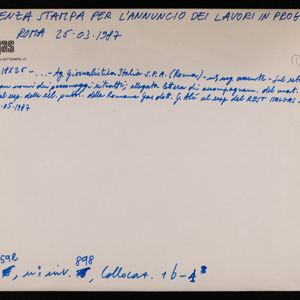 ENZA STAMPA PER L'ANNUNCIO DEI LAVORI IN PROG
ROMA 25.03.1987
gas
18x25 - ... - Ag. Giornalistica Italia S.P.A. (Roma) - neg. assente - Sul retro
nomi dei personaggi ritratti; allegata lettera di accompagnam. del mat.
al resp. delle rel. pubbl. della Romana Gas dott. G. Alì al resp. del REST ITALGAS
.05.1987
592
898
n; inv.
, Collocaz. 1b-A